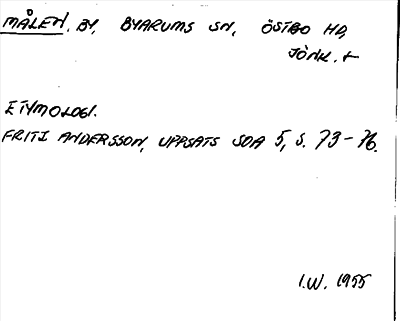 MÅLEN, BY, BYARUMS SN, ÖSTBO HD,
JÖNK. L
ETYMOLOGI.
FRITZ ANDERSSON, UPPSATS SOA 5, S. 73-76.
I.W. 1955